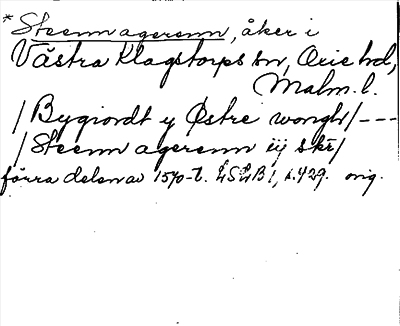 * Steenn agerenn, åker i
Västra Klagstorps sn, Oxie hd,
Malm. l.
/ Bygiordt y Østre wongh /---
/ Steenn agerenn iij skr /
förra delen av 1570-t. LSLB 1, s. 429. orig.